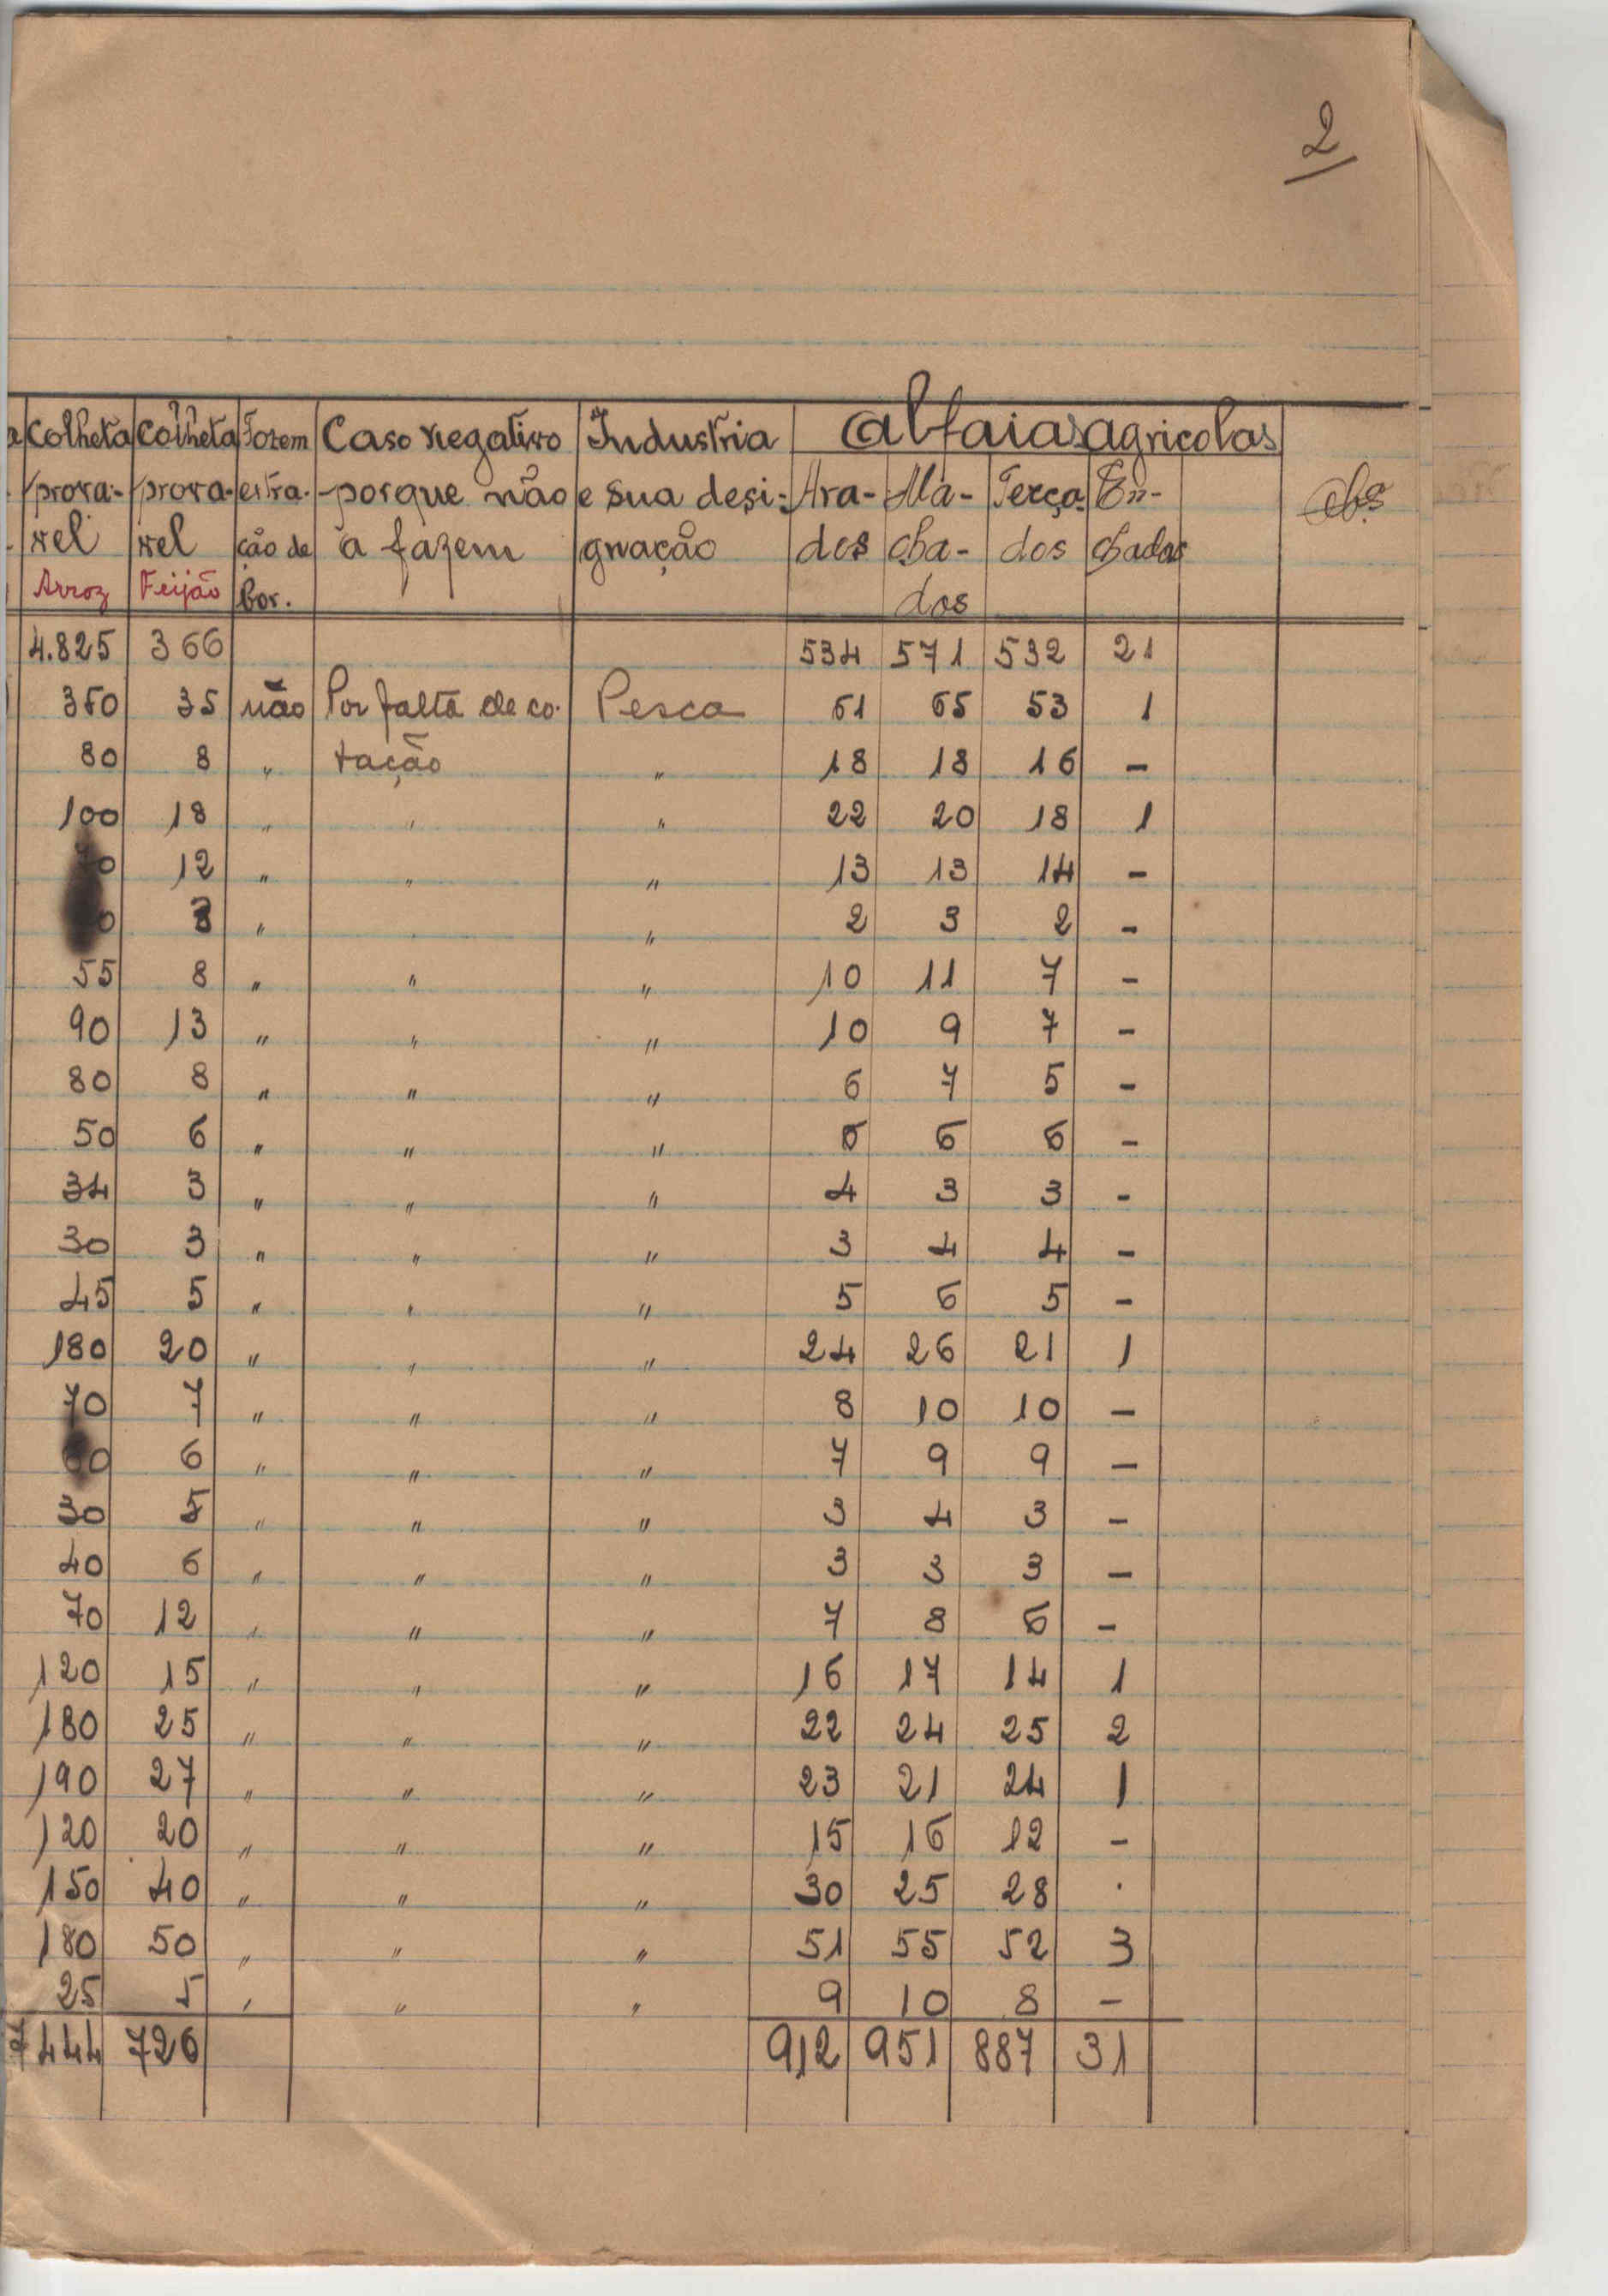 2
Colheta Colheta Fazem Caso negativo Industria Alfaias agricolas
prova- prova- extra- porque não e sua desi- Ara- Ma- Terça- En- Obs
vel vel ção de a fazem gnação dos cha- dos chadas
Arroz Feijão bor. dos
4.825 366 534 571 532 21
350 35 não Por falta de co- Pesca 61 65 53 1
80 8 " tação " 18 18 16 -
100 18 " " " 22 20 18 1
12 " " " 13 13 14 -
3 " " 2 3 2 -
55 8 " " " 10 11 7 -
90 13 " " " 10 9 7 -
80 8 " " " 6 7 5 -
50 6 " " " 6 6 6 -
34 3 " " " 4 3 3 -
30 3 " " " 3 4 4 -
45 5 " " " 5 6 5 -
180 20 " " " 24 26 21 1
70 7 " " " 8 10 10 -
6 " " " 7 9 9 -
30 5 " " " 3 4 3 -
40 6 " " " 3 3 3 -
70 12 " " " 7 8 6 -
120 15 " " " 16 17 14 1
180 25 " " " 22 24 25 2
190 27 " " " 23 21 24 1
120 20 " " " 15 16 12 -
150 40 " " " 30 25 28 .
180 50 " " " 51 55 52 3
25 5 " " " 9 10 8 -
7444 726 912 951 887 31